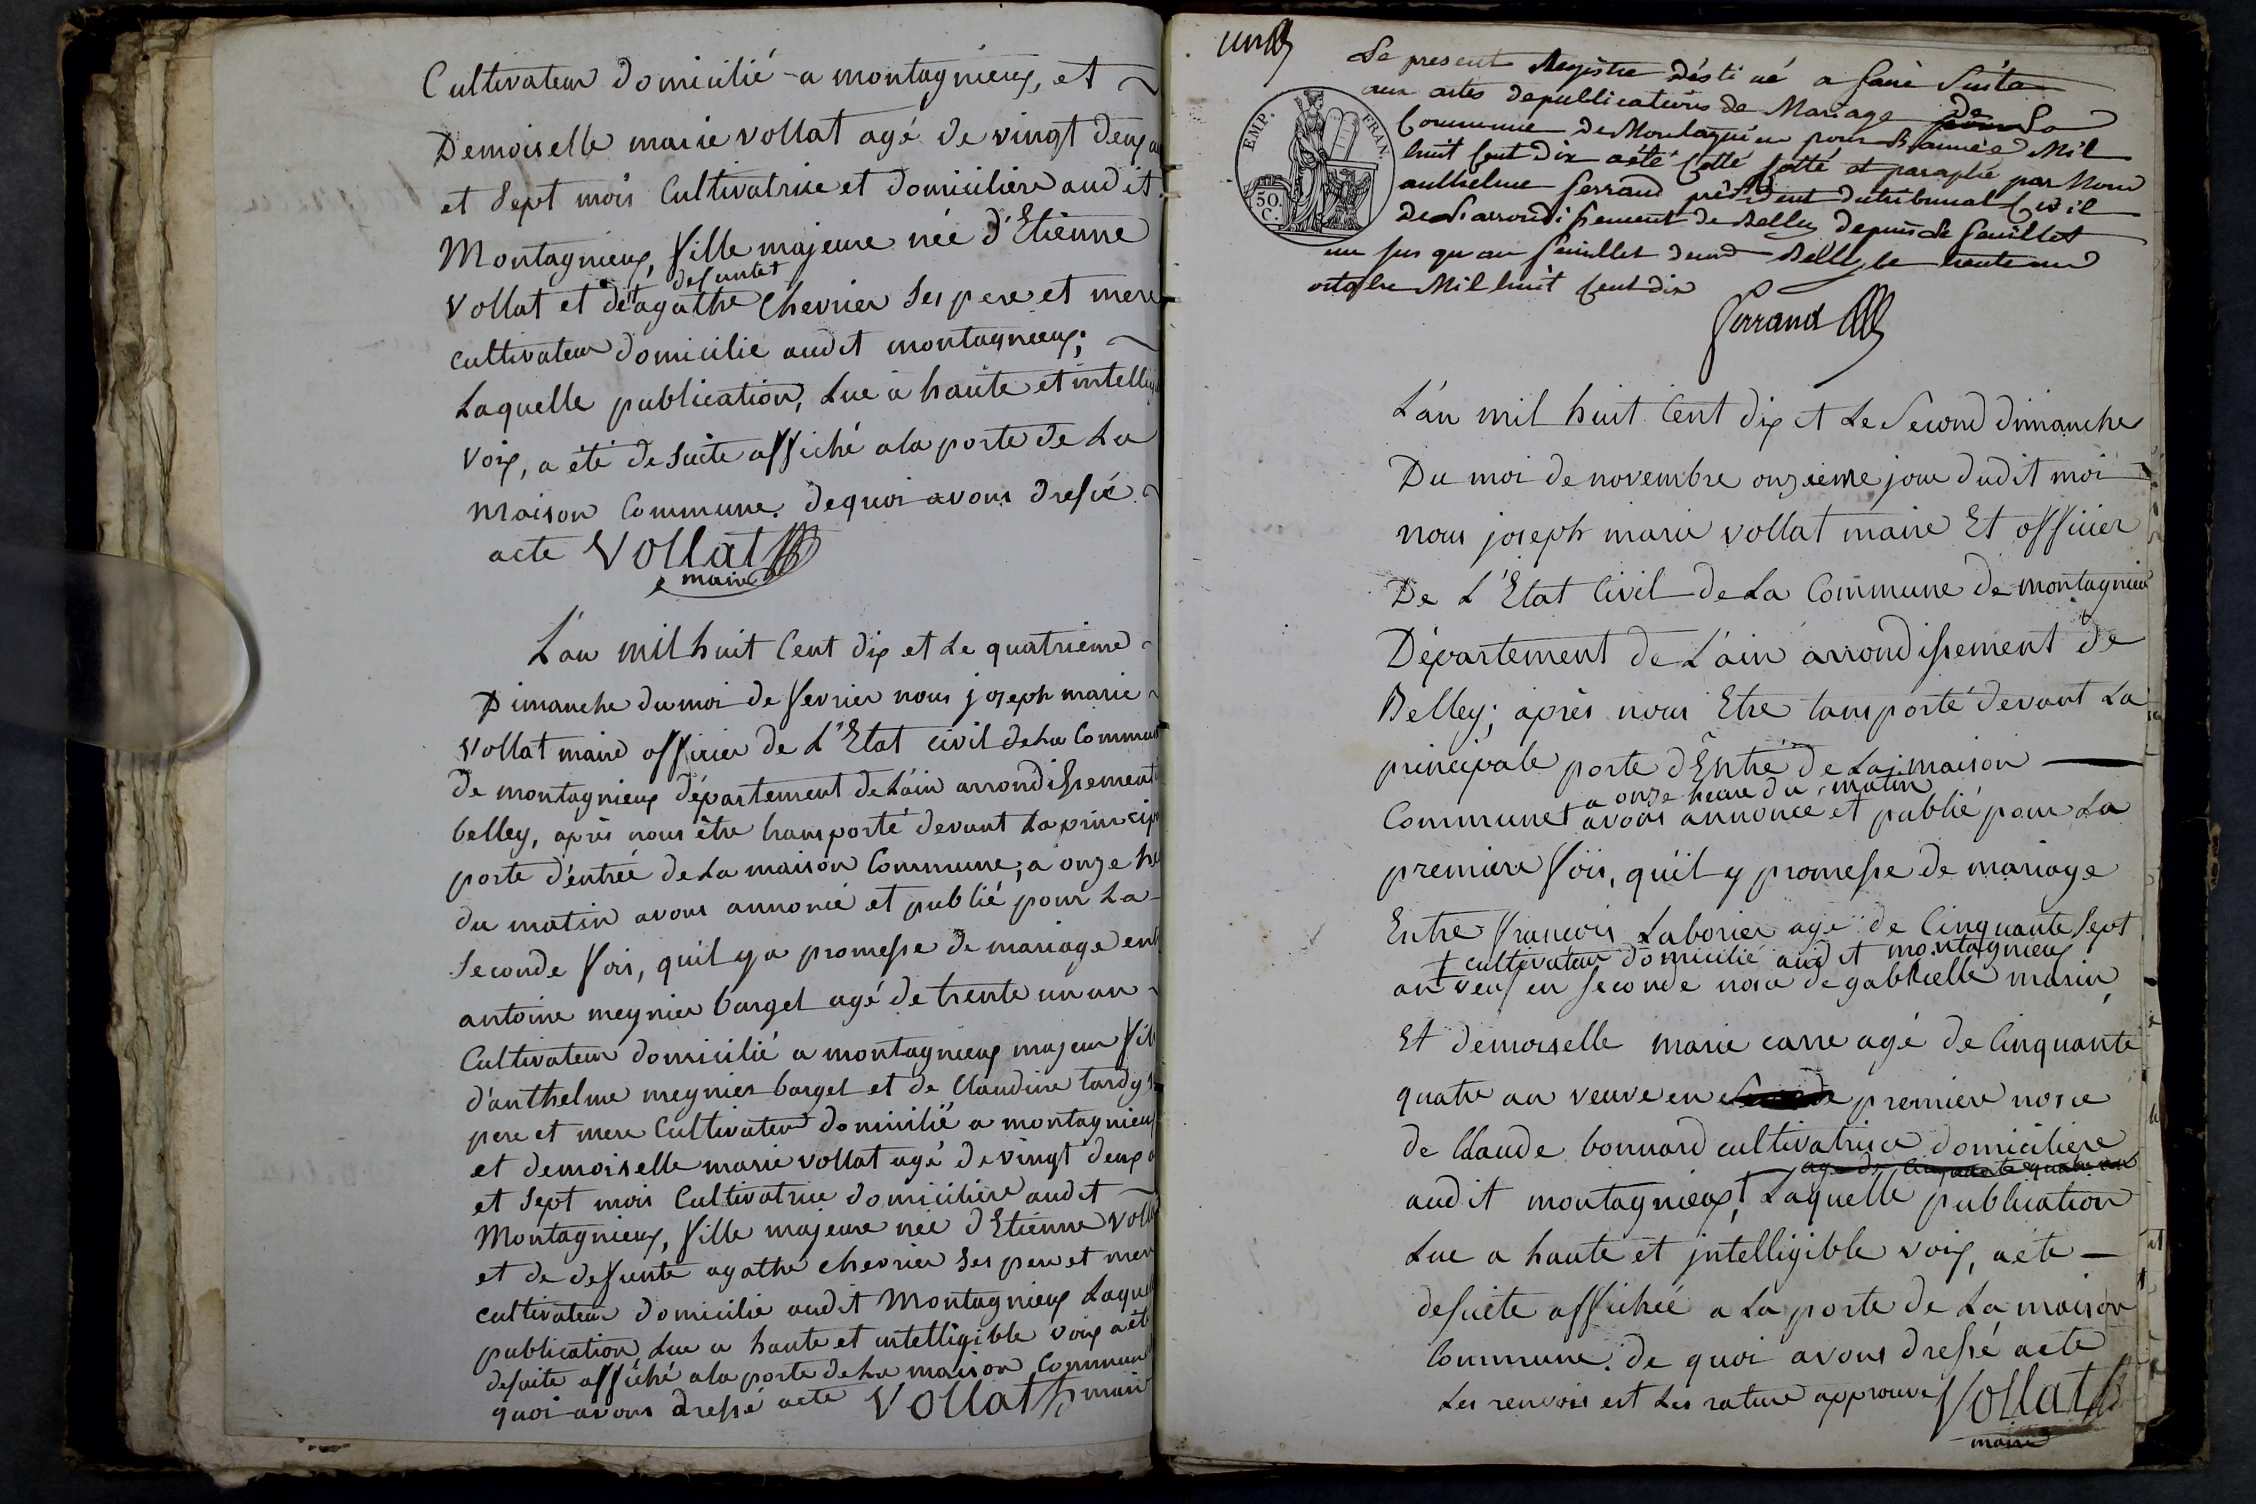 Cultivateur domicilié a montagnieux, et
Demoiselle marie vollat agé de vingt deux
et sept mois Cultivatrice et domiciliere audit
Montagnieux, fille majeure née d'Etienne
defuntet
vollat et de agathe Chevrier ses pere et mere
cultivateur domicilié audit montagnieux;
Laquelle publication, lue a haute et intelli
voix, a été de suite affiché a la porte de La
maison Commune. dequoi avons dressé
acte Vollat
maire
L'an mil huit Cent dix et Le quatrieme
Dimanche du moi de fevrier nous joseph marie
Vollat maire officier de L'Etat civil de La Commun
de montagnieux département de L'ain arrondissement
belley, après nous être transporté devant La princip
porte d'entrée de La maison Commune, a onze he
du matin avons annoncé et publié pour La
Seconde fois, qu'il y a promesse de mariage ent
antoine meynier barget agé de trente un an
Cultivateur domicilié a montagnieux majeur fil
d'anthelme meynier barget et de Claudine tardy
pere et mere Cultivateur domicilié a montagnieux
et demoiselle marie vollat agé de vingt deux
et sept mois Cultivatrice domiciliere audit
Montagnieux, fille majeure née d'Etienne Voll
et de defunte agathe chevrier ses pere et mer
cultivateur domicilié audit Montagnieux Laque
publication Lue a haute et intelligible voix a été
desuite affiché a la porte de La maison Commun
quoi avons dressé acte Vollat maire
un
Le present Registre déstiné a faire Suite
aux actes depublications de Mariage de La
Commune de Montagnieu pour L'année Mil
huit Cent Dix a été Cotté et paraphé par Nous
anthelme ferrand président dutribunal Civil
De L'arrondissement de Belley Depuis Le feuillet
un jusqu'au feuillet deux Belley le trente un
octobre Mil huit Cent dix
ferrand
EMP. FRAN.
50.
C.
L'an mil huit Cent dix et Le Second dimanche
Du moi de novembre onzieme jour dudit moi
nous joseph marie vollat maire Et officier
De L'Etat Civil de La Commune de montagnieu
Département de L'ain arrondissement de
Belley; après nous Etre tansporté devant La
principale porte d'Entré de La maison
a onze heure du matin
Commune avons annoncé et publié pour La
premiere fois, qu'il y promesse de mariage
Entre francois Laborier agé de Cinquante Sept
cultivateur domicilié audit montagnieux
an veuf en seconde noce de gabrielle marin,
Et demoiselle marie carre agé de Cinquante
quatre an veuve en premiere noce
de Claude bonnard cultivatrice domiciliere
age de Cinquante quatre an
audit montagnieux, Laquelle publication
Lue a haute et jntelligible voix, a été
desuite affichée a La porte de La maison
Commune. de quoi avons dressé acte
Les renvois est Les rature approuvé Vollat
maire